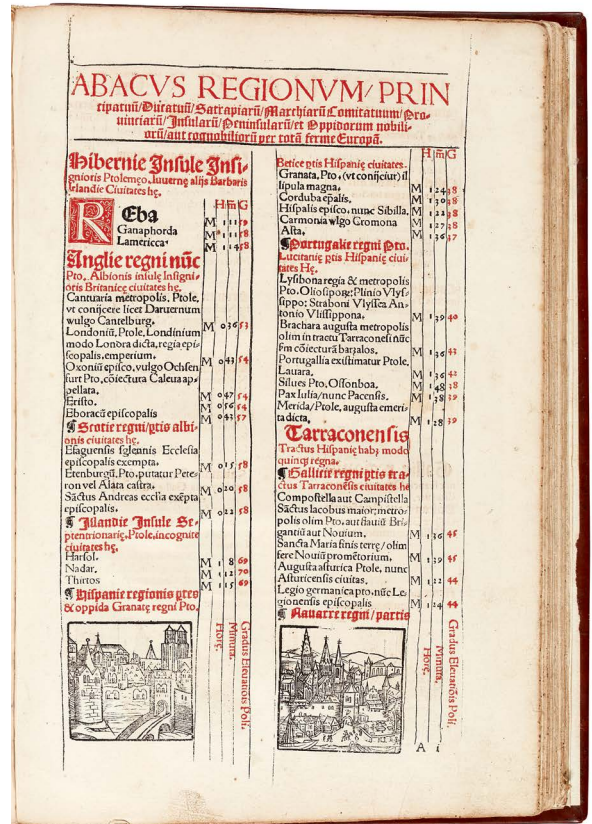 ABACVS REGIONVM/PRIN
tipatuū/Ducatuū/Satrapiarū/Marchiarū Comitatuum/Pro-
uinciarū/Insularū/Peninsularū/et Oppidorum nobili-
orū/aut cognobiliorū per totā ferme Europā.
Hibernie Insule Insi-
gnioris Ptolemęo, Iuuernę alijs Barbaris
Irlandie Ciuitates hę.
H m̄ G
REba M 1 11 59
Ganaphorda M 1 11 58
Lamericca. M 1 14 58
Anglie regni nūc
Pto. Albionis insulę Insigni-
oris Britanicę ciuitates hę.
Cantuaria metropolis. Ptole.
vt conijcere licet Daruernum
wulgo Cantelburg. M 0 36 53
Londoniū, Ptole. Londinium
modo Londra dicta, regia epi-
scopalis, emperium. M 0 43 54
Oxoniū episco, vulgo Ochsen
furt Pto, cōiectura Caleua ap-
pellata. M 0 47 54
Eristo. M 0 56 54
Eboracū episcopalis M 0 43 57
¶ Scotie regni/ptis albi-
onis ciuitates hę.
Efaguensis sgleannis Ecclesia
episcopalis exempta. M 0 15 58
Etenburgū, Pto, putatur Pete-
ron vel Alata castra. M 0 20 58
Sāctus Andreas ecclīa exēpta
episcopalis. M 0 22 58
¶ Islandie Insule Se-
ptentrionarię, Ptole, incognite
ciuitates hę.
Harsol. M 1 8 69
Nadar. M 1 12 70
Thirtos M 1 15 69
¶ Hispanie regionis ptes
& oppida Granatę regni Pto.
Horę.
Minuta.
Gradus Eleuatiōis Poli.
H m̄ G
Betice ptis Hispanię ciuitates.
Granata, Pto, (vt conijciur) il
lipula magna. M 1 24 38
Corduba ep̄alis. M 1 30 38
Hispalis episco, nunc Sibilla. M 1 22 38
Carmonia wlgo Gromona M 1 27 38
Asta. M 1 36 37
¶ Portugalie regni Pto.
Lucitanię ptis Hispanię ciui-
tates Hę.
Lysibona regia & metropolis
Pto. Oliosipore; Plinio Vlys-
sippo: Straboni Vlyssea An-
tonio Vlissippona. M 1 39 40
Brachara augusta metropolis
olim in traetu Tarraconesi nūc
fm cōiecturā barzalos. M 1 36 43
Portugallia existimatur Ptole.
Lauara. M 1 36 42
Silues Pto, Ossonboa. M 1 48 38
Pax Iulia/nunc Pacensis. M 1 38 39
Merida/Ptole, augusta emeri-
ta dicta. M 1 28 39
Tarraconensis
Tractus Hispanię habz modo
quinq; regna.
¶ Gallicie regni ptis tra-
ctus Tarraconēsis ciuitates hę
Compostella aut Campistella
Sanctus Iacobus maior; metro-
polis olim Pto. aut flauiū Bri-
gantiū aut Nouium. M 1 36 45
Sancta Maria finis terrę/olim
fere Nouiū promētorium. M 1 39 45
Augusta asturica Ptole, nunc
Asturicensis ciuitas. M 1 22 44
Legio germanica pto. nūc Le-
gionensis episcopalis M 1 24 44
¶ Nauarre regni/partis
Horę.
Minuta.
Gradus Eleuatiōis Poli.
A i